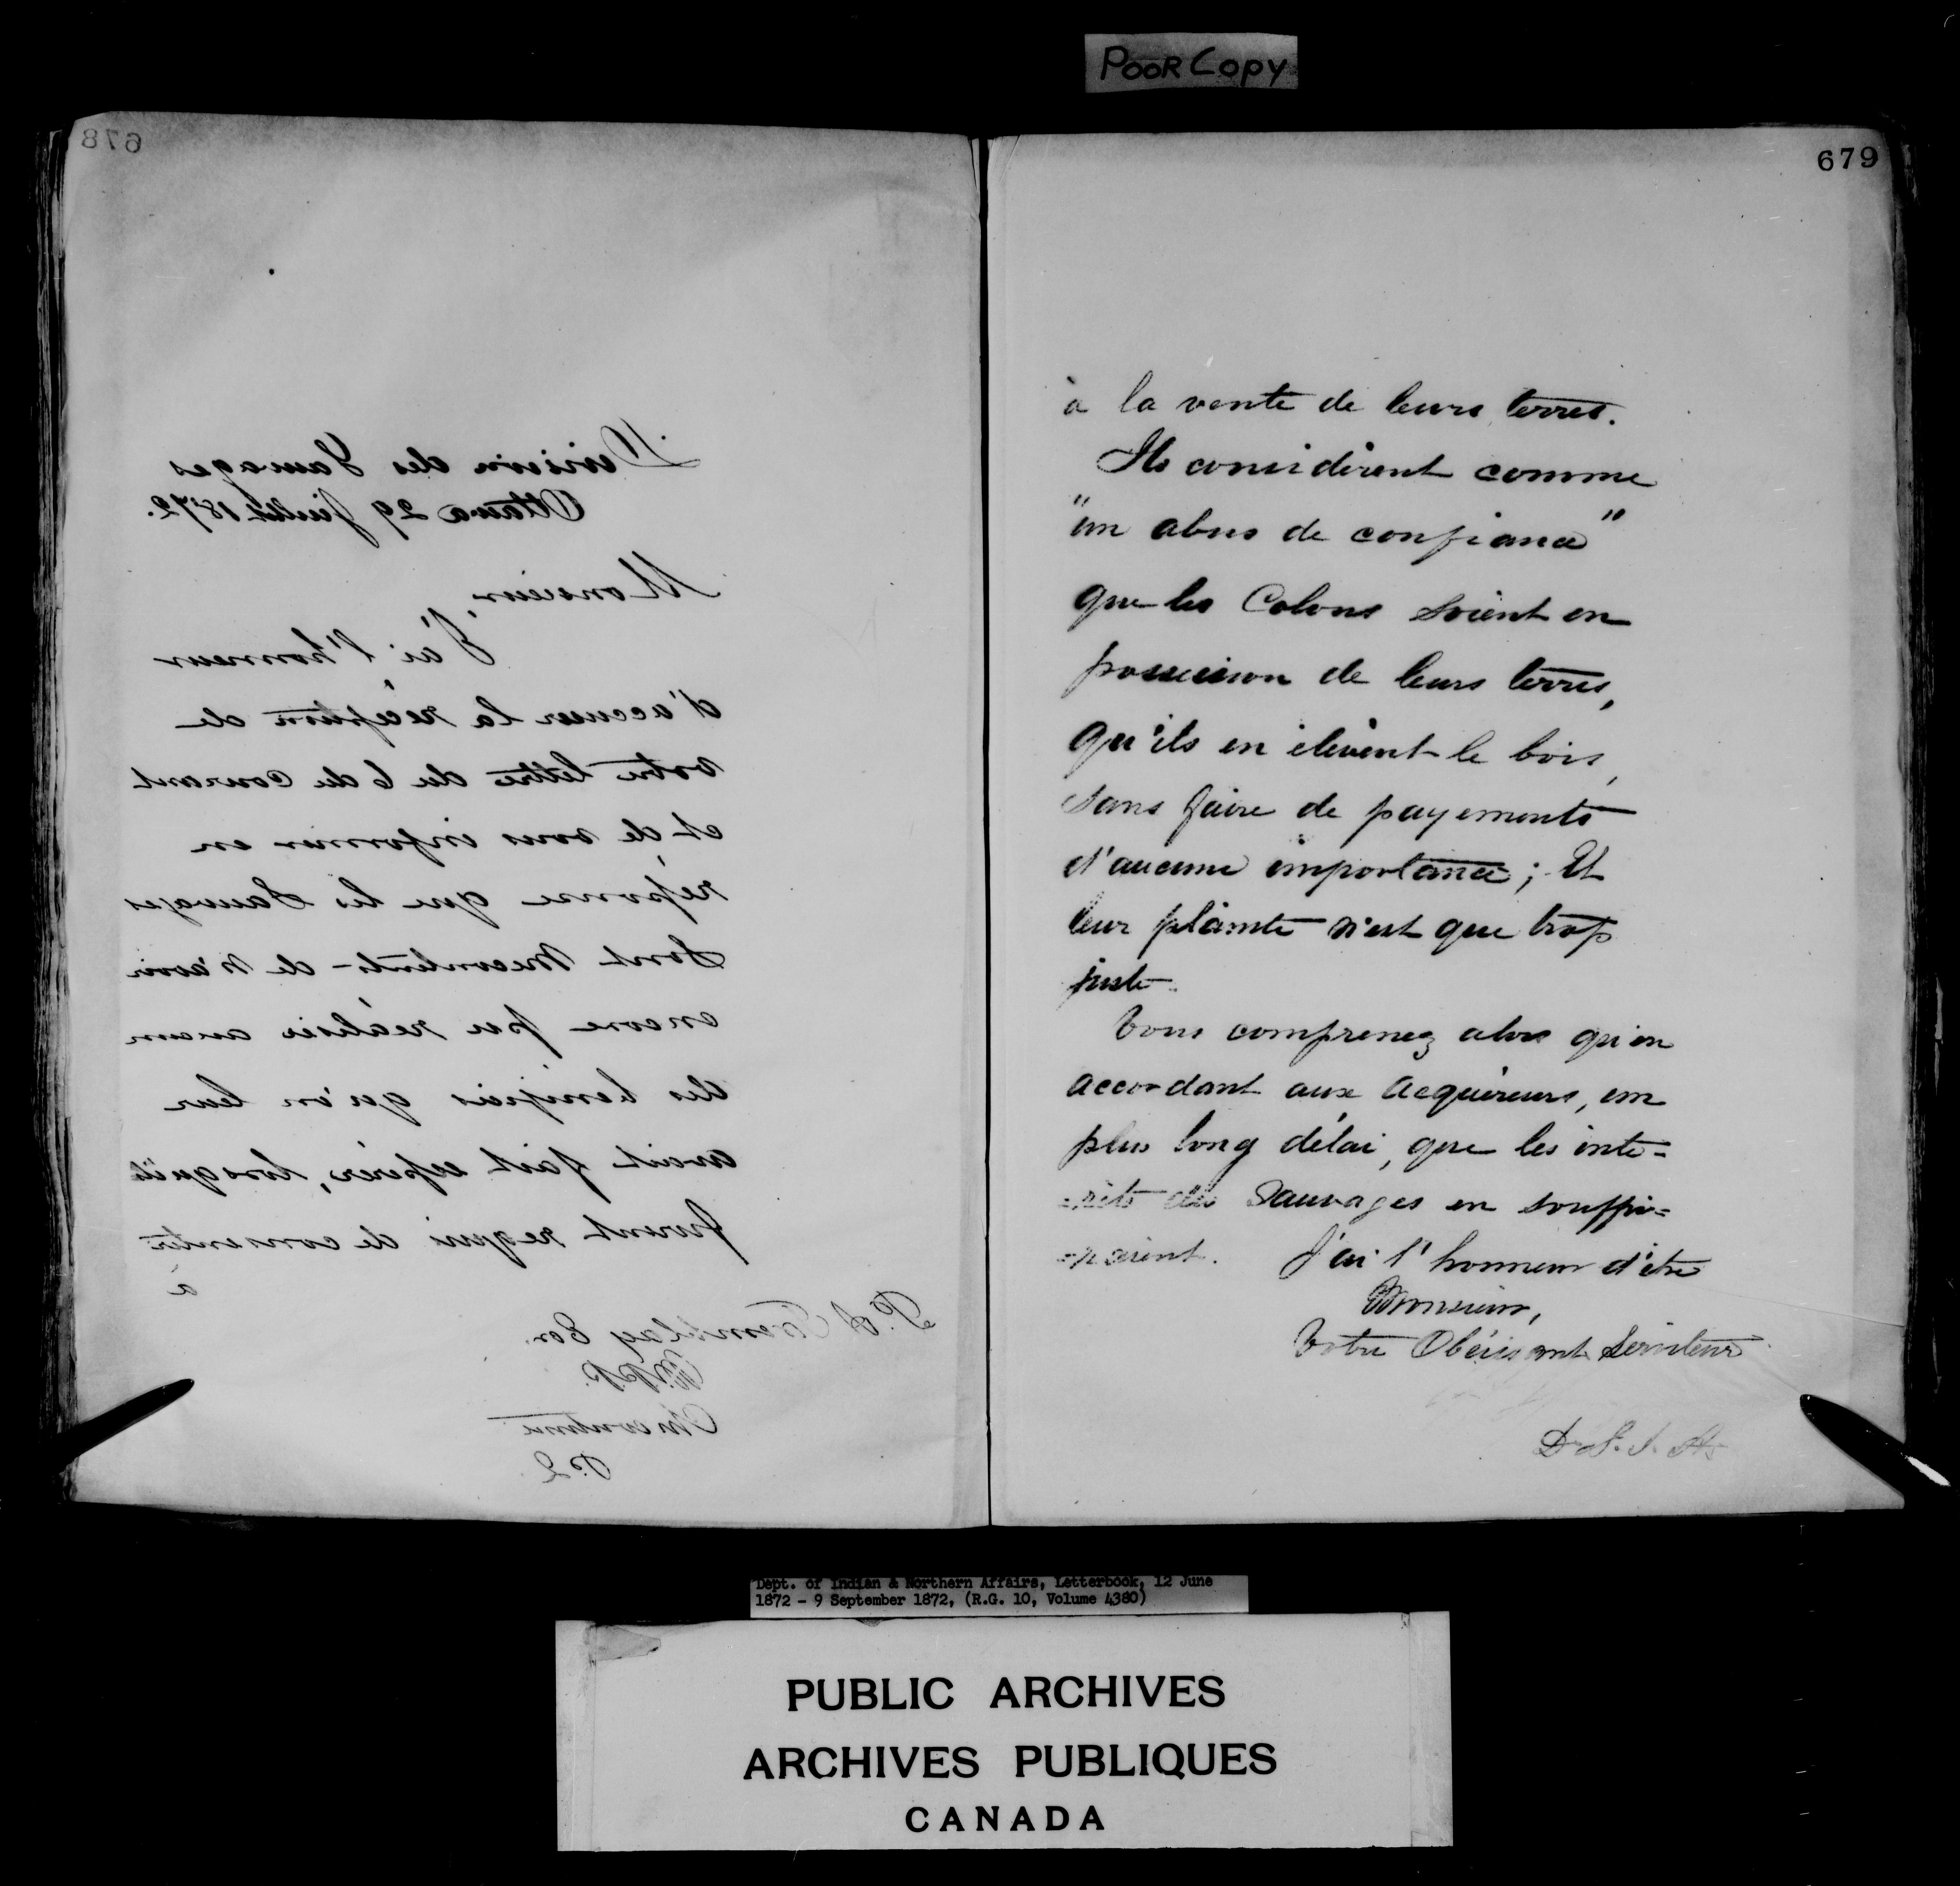 POOR Copy
678
Division des Sauvages
Ottawa 29 Juillet 1872.
Monsieur,
J'ai l'honneur
d'accuser la réception de
votre lettre du 6 du Courant
et de vous informer en
réponse que les Sauvages
Sont Mecontents de n'avoir
encore pu réaliser aucun
des benifices qu'on leur
avait fait espérer, lorsqu'ils
furent requis de consentir
à
P. A Tremblay Ecr.
M.P.P.
Chicoutimi
P.Q.
679
à la vente de leurs terres.
Ils considèrent comme
"un abus de confiance"
que les Colons soient en
possession de leurs terres,
qu'ils en elèvent le bois,
sans faire de payements
d'aucune importance; Et
leur plainte n'est que trop
juste.
Vous comprenez alors qu'en
accordant aux Acquéreurs, un
plus long délai, que les inté=
=rêts des Sauvages en souffri=
=raient. J'ai l'honneur d'être
Monsieur,
Votre Obéissant Serviteur
D. S. I. A.
Dept. of Indian & Northern Affairs, Letterbook, 12 June
1872 - 9 September 1872, (R.G. 10, Volume 4380)
PUBLIC ARCHIVES
ARCHIVES PUBLIQUES
CANADA